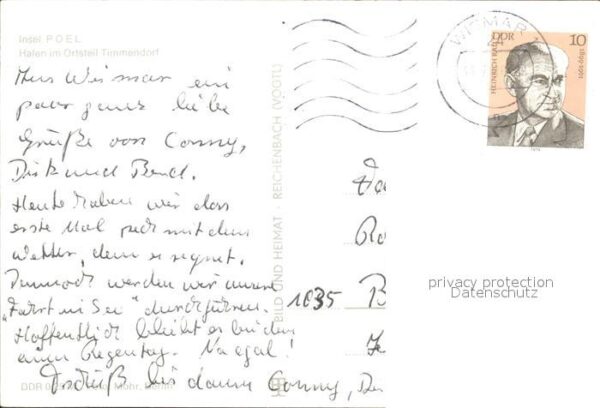 Insel POEL
Hafen im Ortsteil Timmendorf
Aus Wismar ein
paar ganz liebe
Grüße von Conny,
Dirk und Bernd.
Heute haben wir das
erste Mal Pech mit dem
Wetter, denn es regnet.
Dennoch werden wir unsere
"Fahrt in See" durchführen.
Hoffentlich bleibt es bei dem
einen Regentag. Na egal!
Tschüß bis dann Conny,
BILD UND HEIMAT · REICHENBACH (VOGTL)
WISMAR
DDR
10
HEINRICH RAU
1899-1961
1035 B
privacy protection
Datenschutz